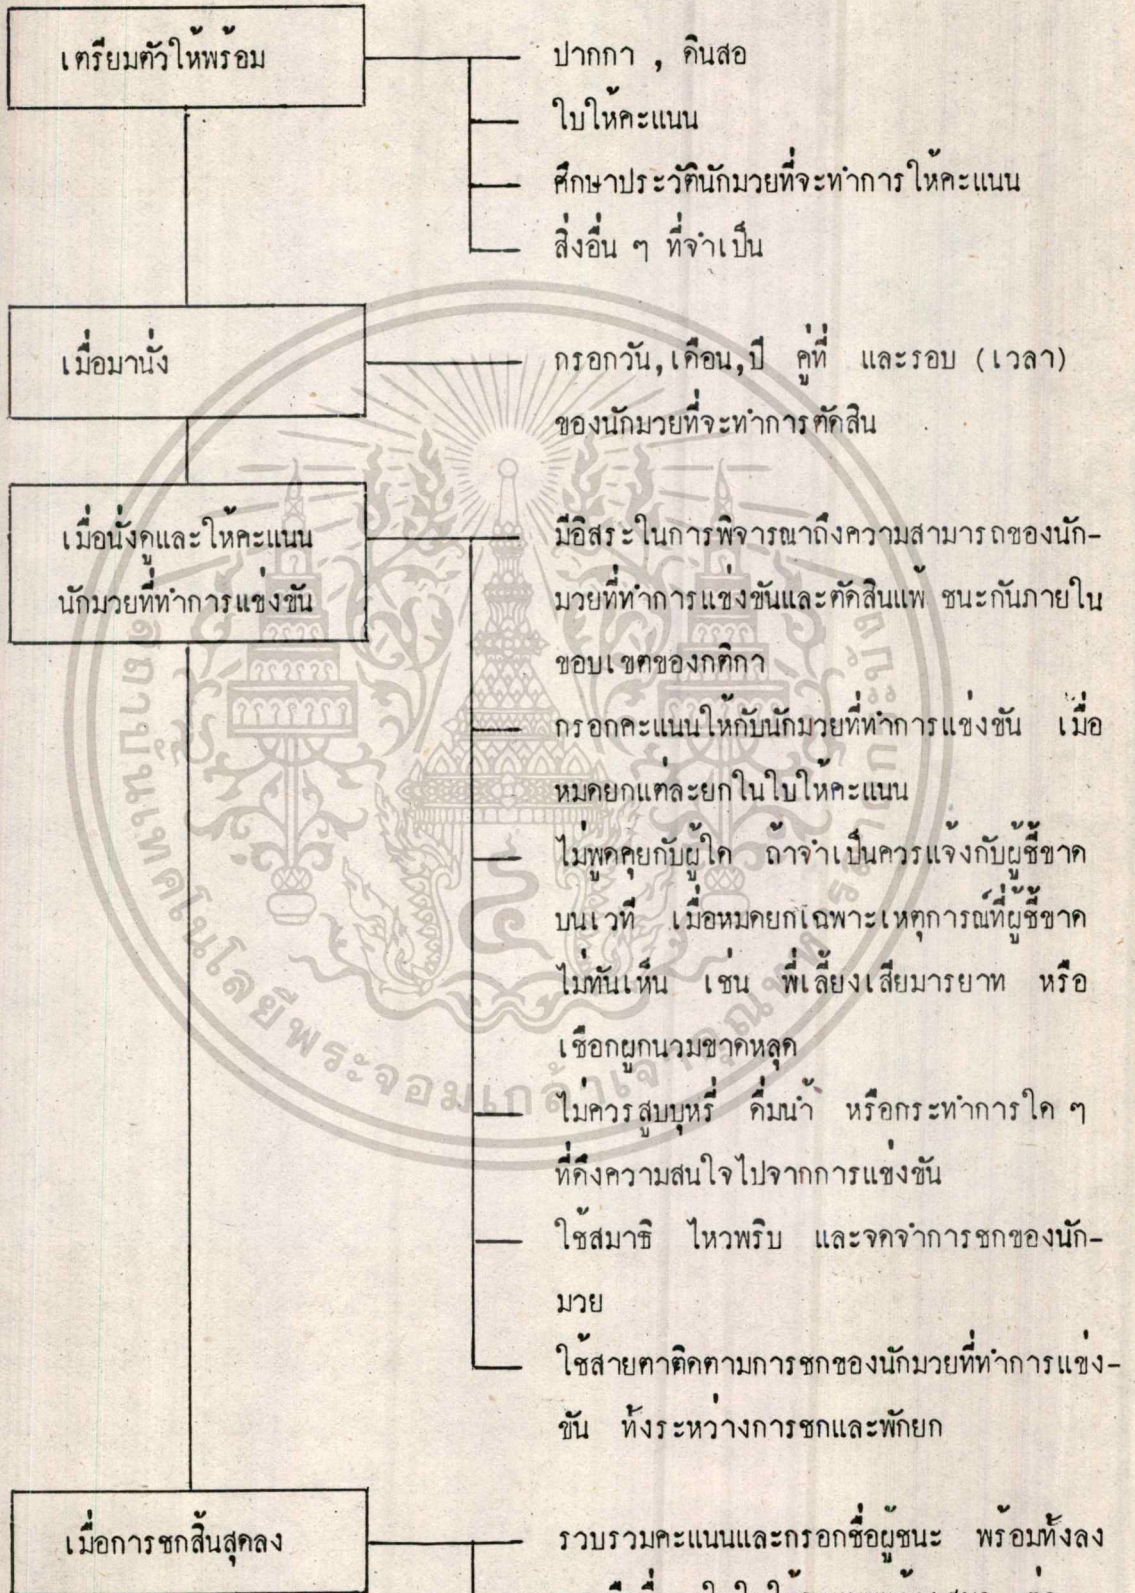 เตรียมตัวให้พร้อม
ปากกา , ดินสอ
ใบให้คะแนน
ศึกษาประวัตินักมวยที่จะทำการให้คะแนน
สิ่งอื่น ๆ ที่จำเป็น
เมื่อมานั่ง
กรอกวัน,เดือน,ปี คู่ที่ และรอบ (เวลา)
ของนักมวยที่จะทำการตัดสิน
เมื่อนั่งดูและให้คะแนน
นักมวยที่ทำการแข่งขัน
มีอิสระในการพิจารณาถึงความสามารถของนัก-
มวยที่ทำการแข่งขันและตัดสินแพ้ ชนะกันภายใน
ขอบเขตของกติกา
กรอกคะแนนให้กับนักมวยที่ทำการแข่งขัน เมื่อ
หมดยกแต่ละยกในใบให้คะแนน
ไม่พูดคุยกับผู้ใด ถ้าจำเป็นควรแจ้งกับผู้ชี้ขาด
บนเวที เมื่อหมดยกเฉพาะเหตุการณ์ที่ผู้ชี้ขาด
ไม่ทันเห็น เช่น พี่เลี้ยงเสียมารยาท หรือ
เชือกผูกนวมขาดหลุด
ไม่ควรสูบบุหรี่ ดื่มน้ำ หรือกระทำการใด ๆ
ที่ดึงความสนใจไปจากการแข่งขัน
ใช้สมาธิ ไหวพริบ และจดจำการชกของนัก-
มวย
ใช้สายตาติดตามการชกของนักมวยที่ทำการแข่ง-
ขัน ทั้งระหว่างการชกและพักยก
เมื่อการชกสิ้นสุดลง
รวบรวมคะแนนและกรอกชื่อผู้ชนะ พร้อมทั้งลง
สถาบันเทคโนโลยีพระจอมเกล้าเจ้าคุณทหารลาดกระบัง